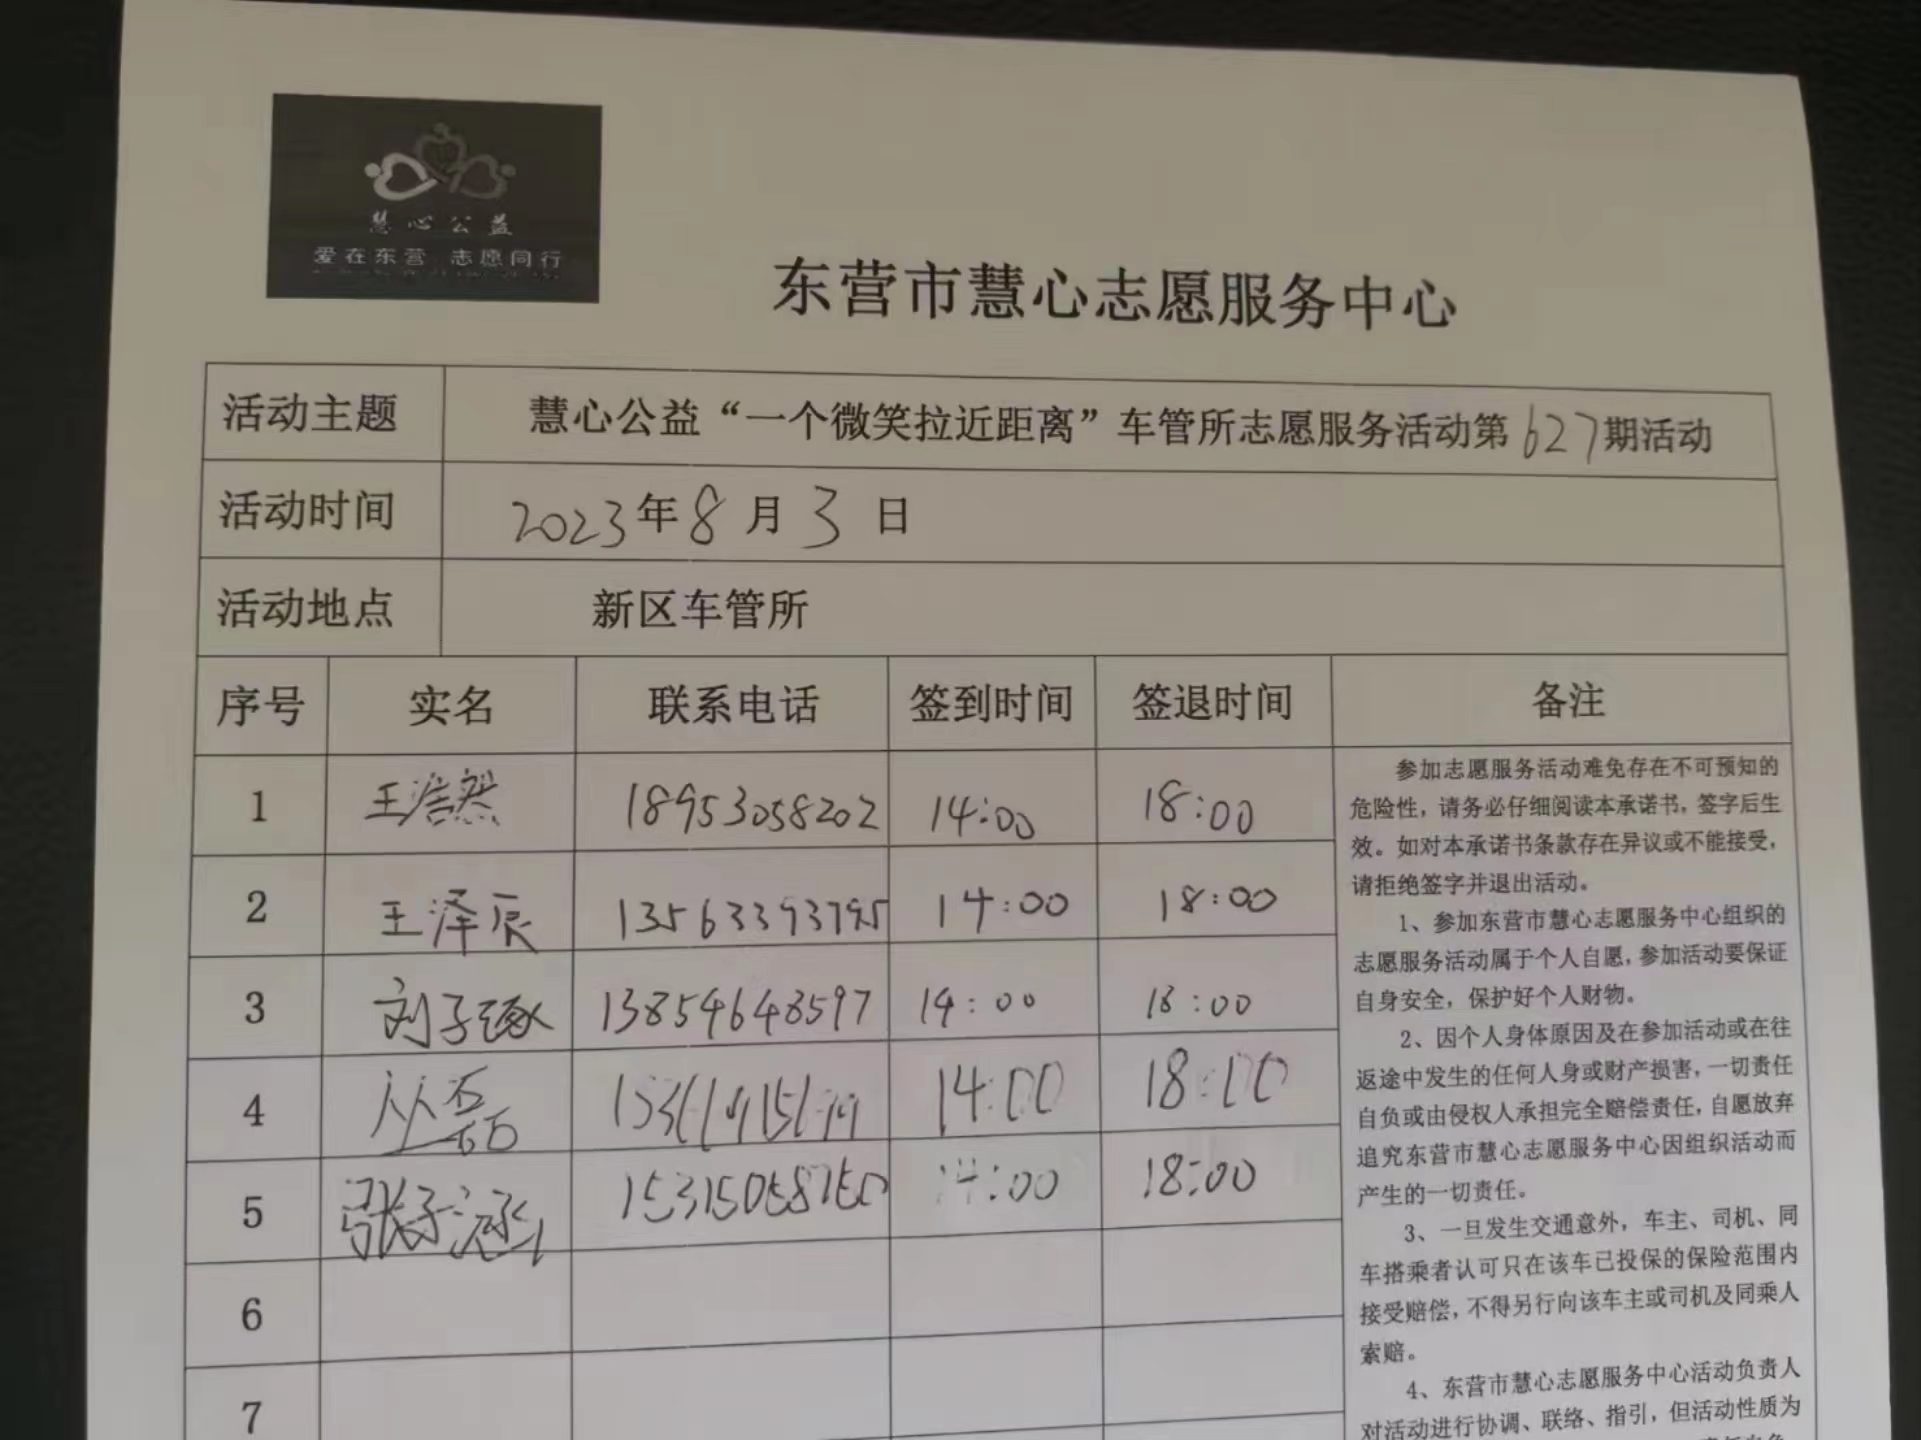 慧心公益
爱在东营 志愿同行
东营市慧心志愿服务中心
活动主题 慧心公益“一个微笑拉近距离”车管所志愿服务活动第627期活动
活动时间 2023年8月3日
活动地点 新区车管所
序号 实名 联系电话 签到时间 签退时间 备注
1 王浩然 18953058202 14:00 18:00
2 王泽辰 13563393795 14:00 18:00
3 刘子琢 13854648597 14:00 18:00
4 丛磊 14:00 18:00
5 张子涵 15315058150 14:00 18:00
6
7
参加志愿服务活动难免存在不可预知的
危险性，请务必仔细阅读本承诺书，签字后生
效。如对本承诺书条款存在异议或不能接受，
请拒绝签字并退出活动。
1、参加东营市慧心志愿服务中心组织的
志愿服务活动属于个人自愿，参加活动要保证
自身安全，保护好个人财物。
2、因个人身体原因及在参加活动或在往
返途中发生的任何人身或财产损害，一切责任
自负或由侵权人承担完全赔偿责任，自愿放弃
追究东营市慧心志愿服务中心因组织活动而
产生的一切责任。
3、一旦发生交通意外，车主、司机、同
车搭乘者认可只在该车已投保的保险范围内
接受赔偿，不得另行向该车主或司机及同乘人
索赔。
4、东营市慧心志愿服务中心活动负责人
对活动进行协调、联络、指引，但活动性质为